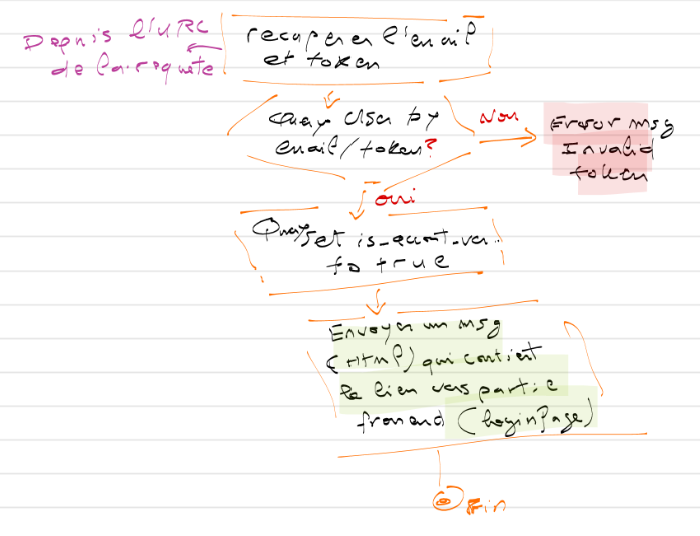 Depuis l'URL
de la requete
recuperer l'email
et token
Query User by
email/token?
Non
Error msg
Invalid
token
oui
Query set is_
to true
Envoyer un msg
(HTML) qui contient
le lien vers partie
fronend (loginPage)
Fin